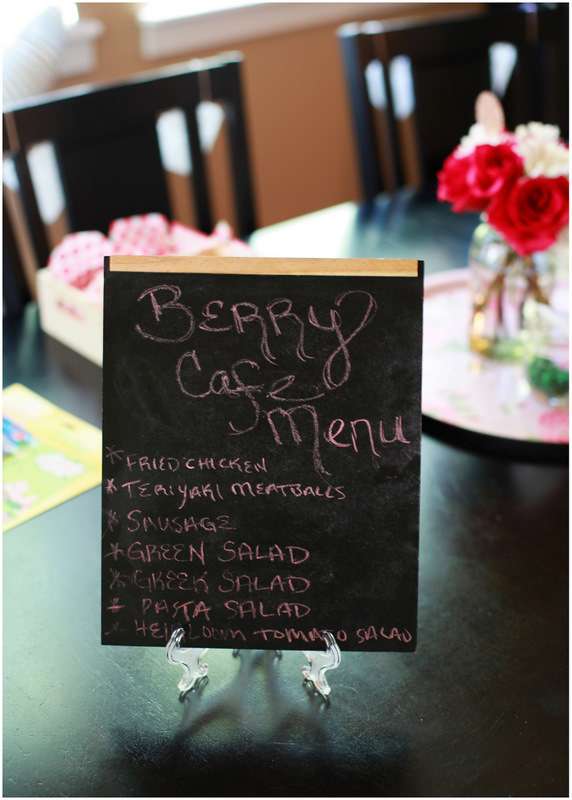 Berry
Cafe
Menu
* FRIED CHICKEN
* TERIYAKI MEATBALLS
* SAUSAGE
* GREEN SALAD
* GREEK SALAD
* PASTA SALAD
* HEIRLOOM TOMATO SALAD